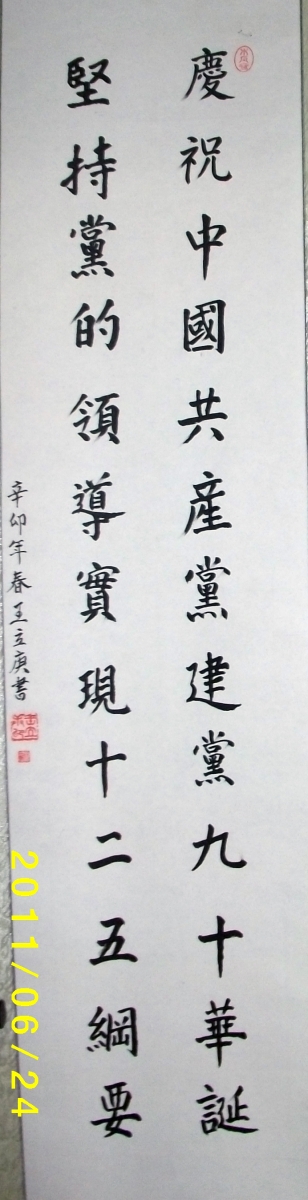 慶祝中國共産黨建黨九十華誕
堅持黨的領導實現十二五綱要
辛卯年春王立庚書
2011/06/24